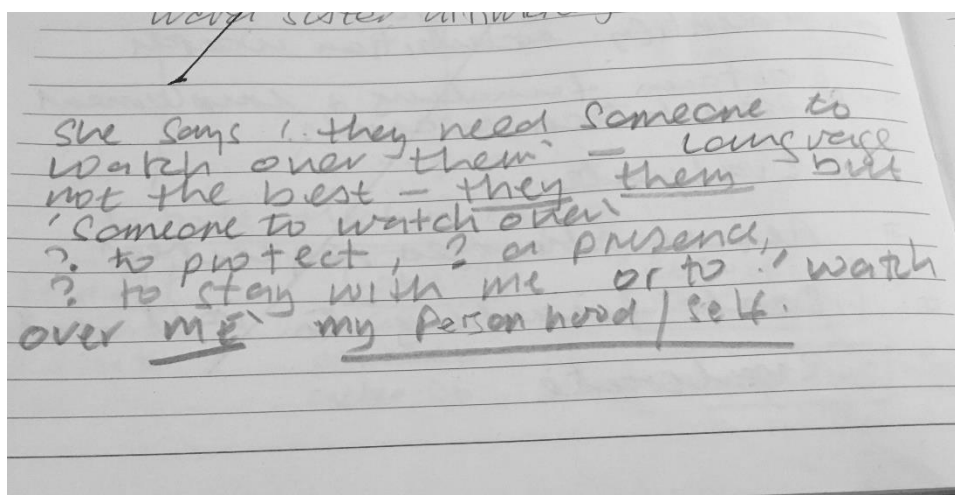 She says '. they need someone to
watch over them' - language
not the best - they them but
'Someone to watch over'
? to protect, ? a presence,
? to stay with me or to '' watch
over me' my Person hood / self.